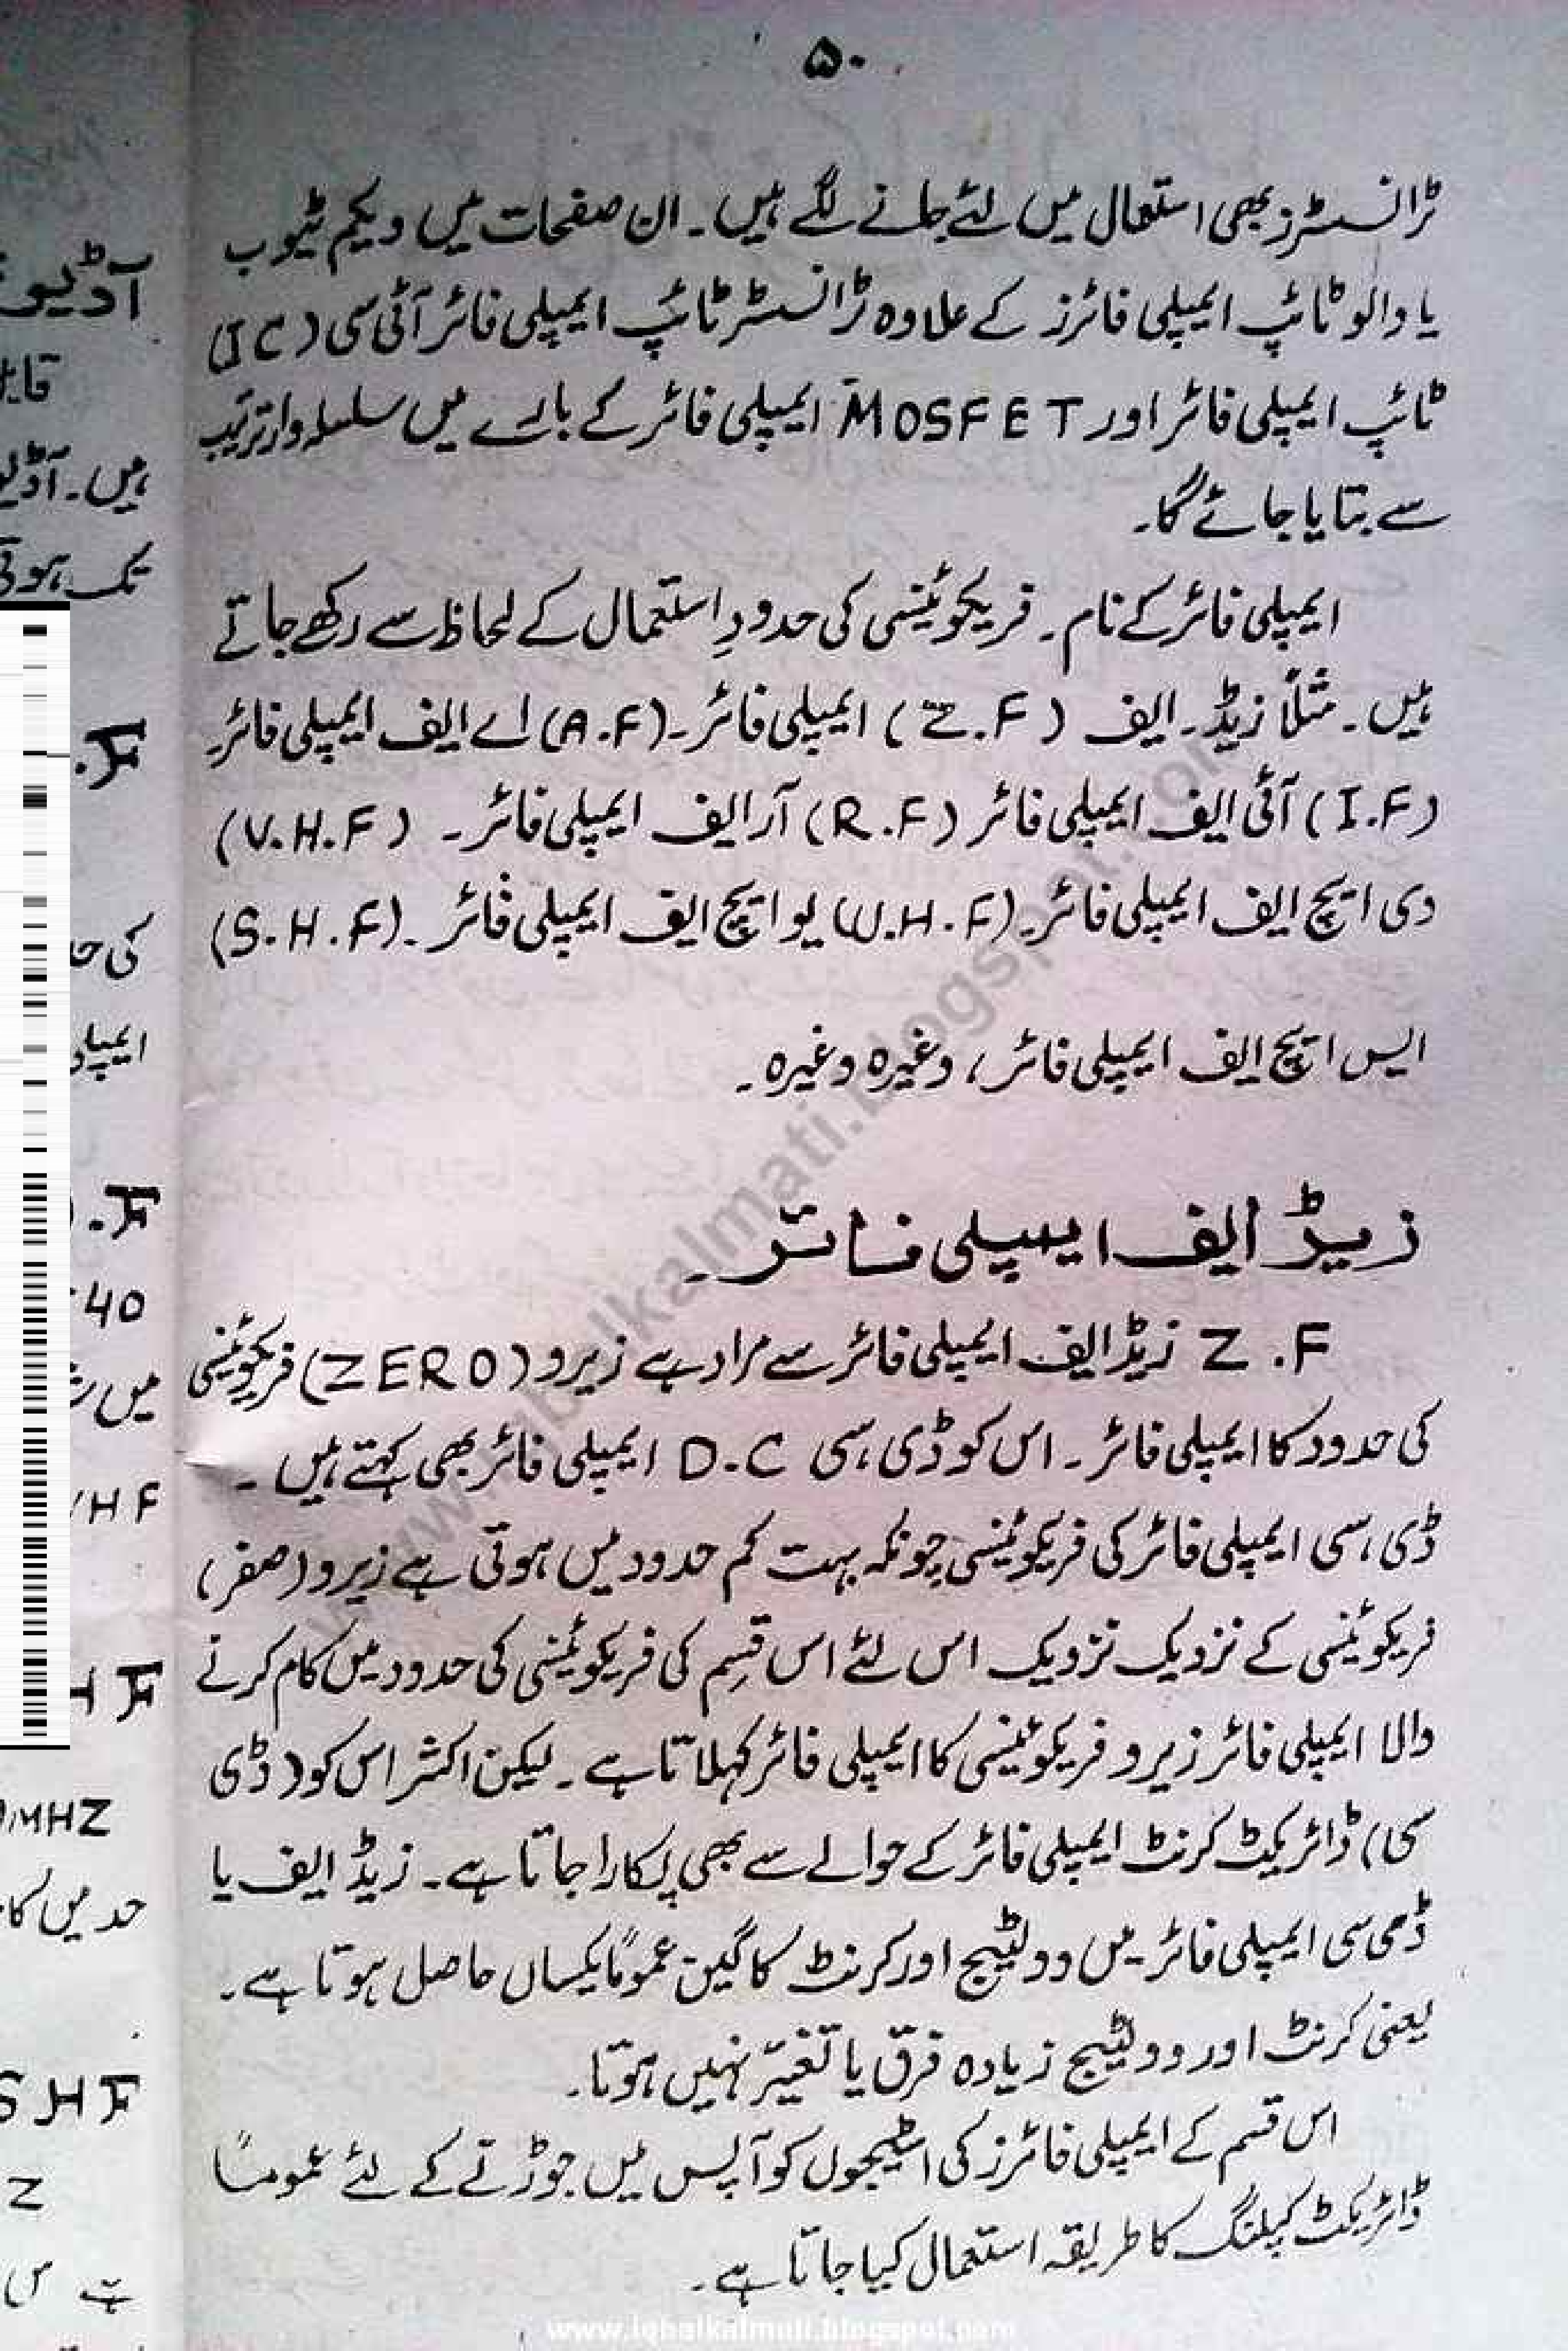 ۵۰
ٹرانسسٹرز بھی استعمال میں لئے جانے لگے ہیں۔ ان صفحات میں ویکیم ٹیوب
یا والو ٹائپ ایمپلی فائرز کے علاوہ ٹرانسسٹر ٹائپ ایمپلی فائر آئی سی (IC)
ٹائپ ایمپلی فائر اور MOSFET ایمپلی فائر کے بارے میں سلسلہ وار ترتیب
سے بتایا جائے گا۔
ایمپلی فائر کے نام ۔ فریکوئینسی کی حدودِ استعمال کے لحاظ سے رکھے جاتے
ہیں۔ مثلاً زیڈ۔ ایف (Z.F) ایمپلی فائر۔ (A.F) اے ایف ایمپلی فائر
(I.F) آئی ایف ایمپلی فائر (R.F) آر ایف ایمپلی فائر ۔ (V.H.F)
وی ایچ ایف ایمپلی فائر۔ (U.H.F) یو ایچ ایف ایمپلی فائر ۔ (S.H.F)
ایس ایچ ایف ایمپلی فائر، وغیرہ وغیرہ ۔
زیڈ ایف ایمپلی فائر ۔
Z.F زیڈ ایف ایمپلی فائر سے مراد ہے زیرو (ZERO) فریکوئینسی
کی حدود کا ایمپلی فائر ۔ اس کو ڈی، سی D.C ایمپلی فائر بھی کہتے ہیں ۔
ڈی، سی ایمپلی فائر کی فریکوئینسی چونکہ بہت کم حدود میں ہوتی ہے زیرو (صفر)
فریکوئینسی کے نزدیک نزدیک اس لئے اس قسِم کی فریکوئینسی کی حدود میں کام کرنے
والا ایمپلی فائر زیرو فریکوئینسی کا ایمپلی فائر کہلاتا ہے ۔ لیکن اکثر اس کو (ڈی
سی) ڈائریکٹ کرنٹ ایمپلی فائر کے حوالے سے بھی پکارا جاتا ہے۔ زیڈ ایف یا
ڈی سی ایمپلی فائر میں وولٹیج اور کرنٹ کا گین عموماً یکساں حاصل ہوتا ہے۔
یعنی کرنٹ اور وولٹیج زیادہ فرق یا تغیّر نہیں ہوتا۔
اس قسم کے ایمپلی فائرز کی اسٹیجوں کو آپس میں جوڑنے کے لئے عموماً
ڈائریکٹ کپلنگ کا طریقہ استعمال کیا جاتا ہے۔
www.iqbalkalmati.blogspot.com
آڈیو
ہیں۔
تک
ہوتی
کی
40
میں
HF
MHZ
حد میں
www.iqbalkalmati.blogspot.com